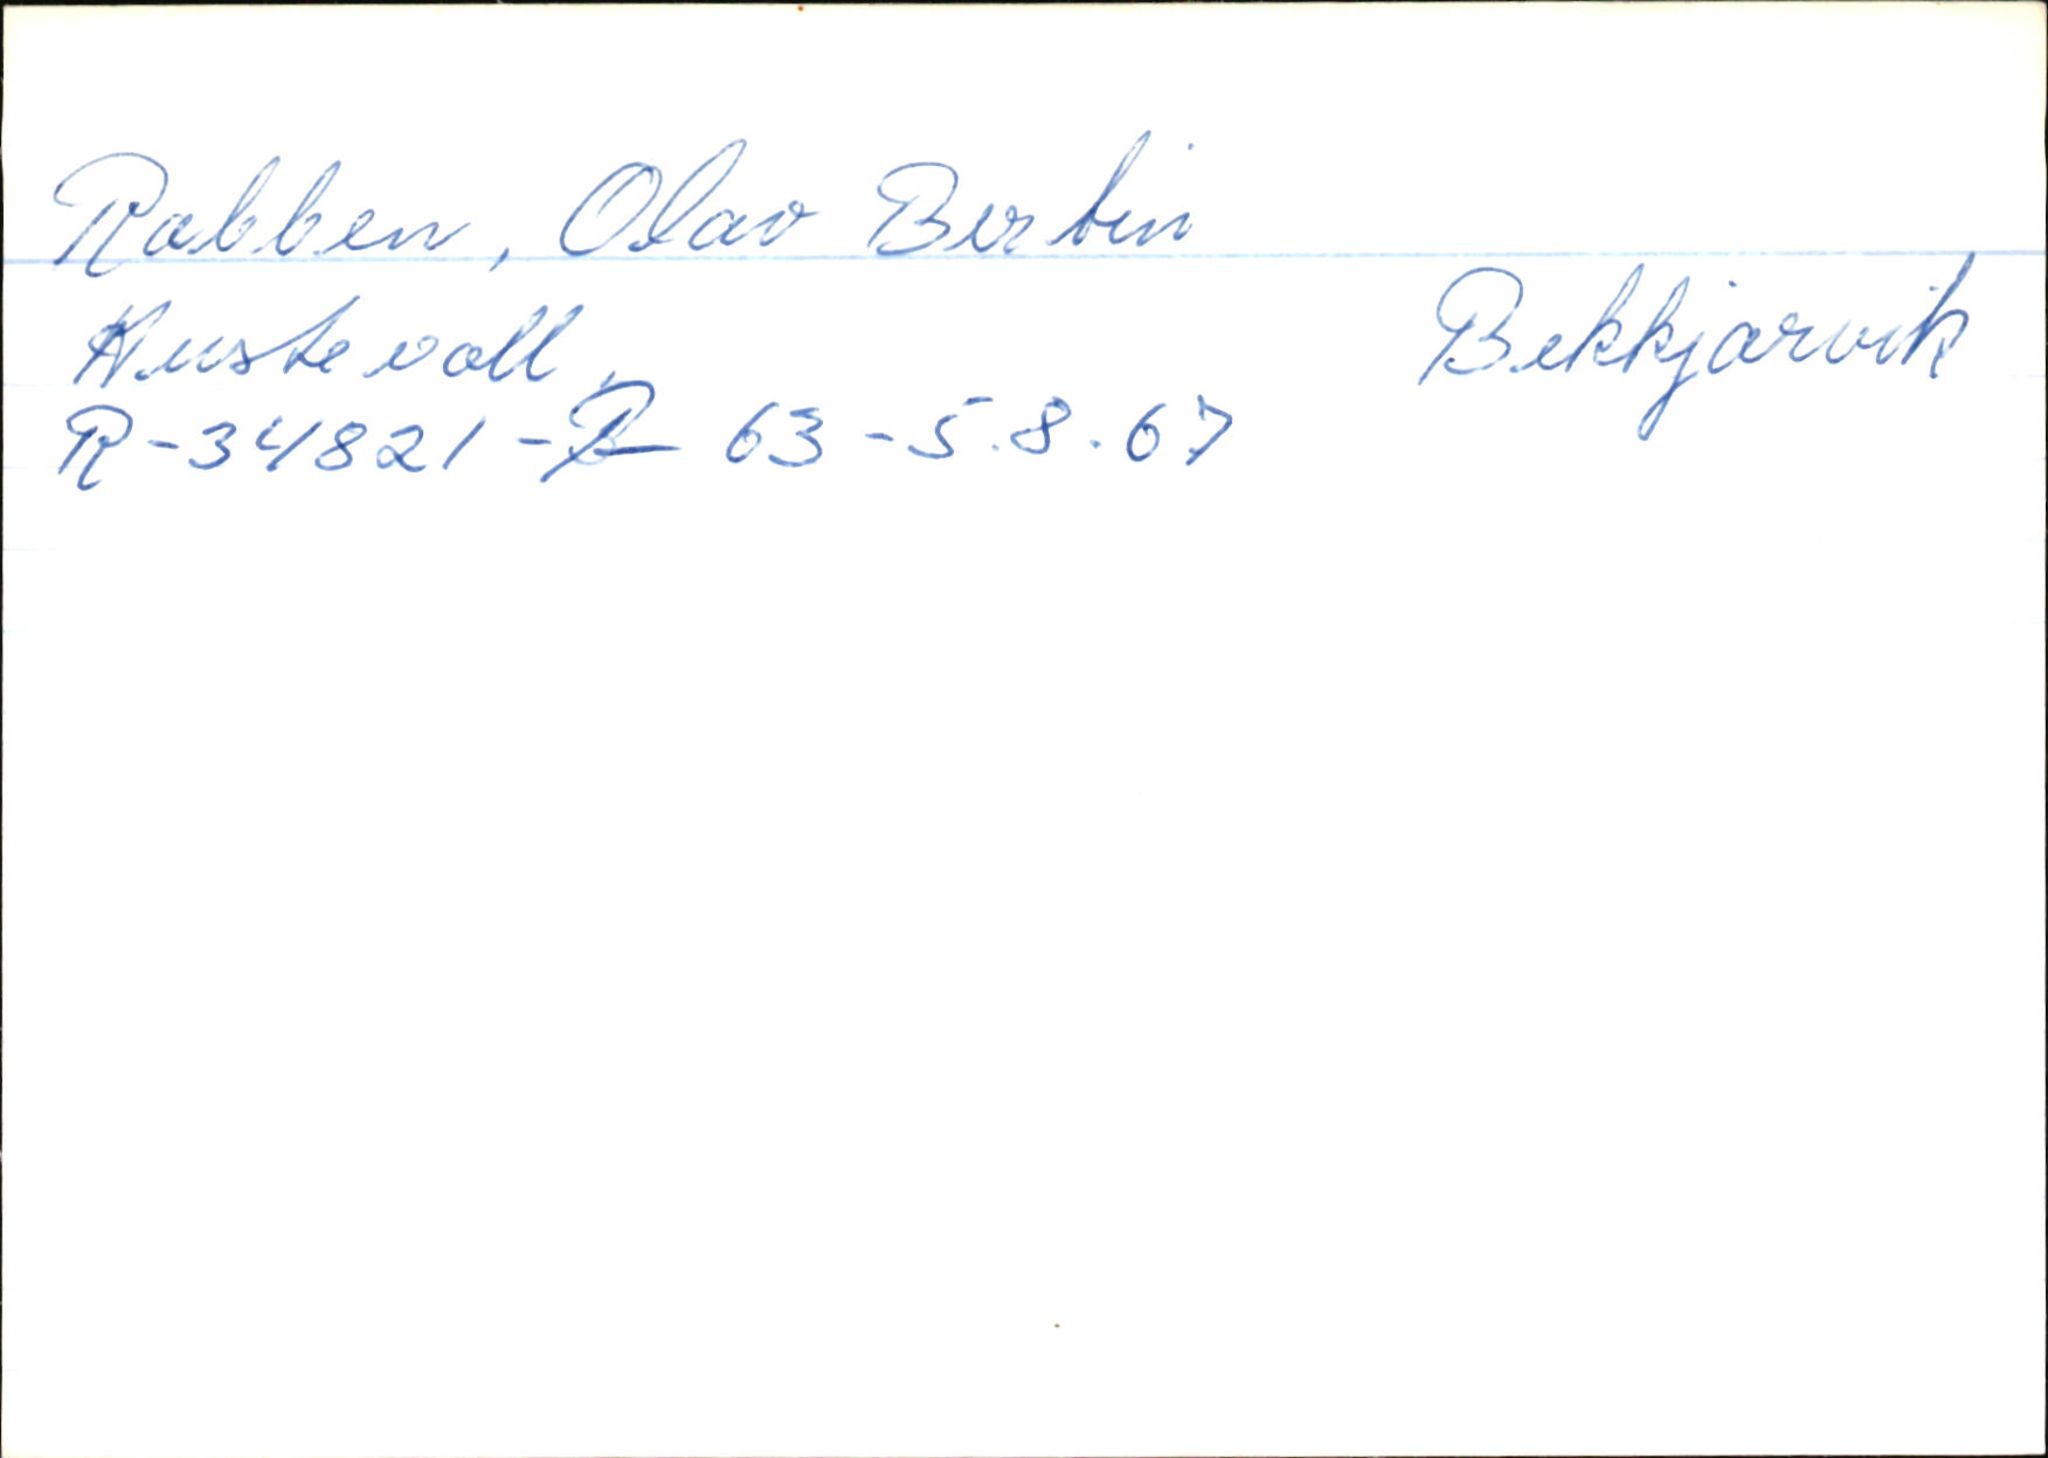 Rabben, Olav Bertin
Hustevoll Bekkjarvik
R-34821- 63-5.8.67